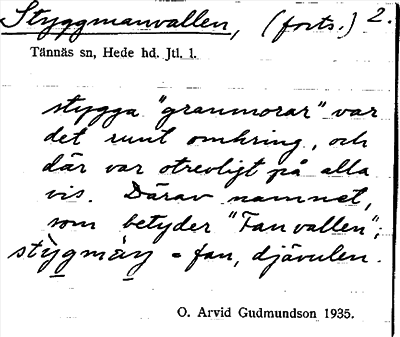 Styggmanvallen, (forts.) 2.
Tännäs sn, Hede hd. Jtl. l.
stygga "granmorar" var
det runt omkring, och
där var otrevligt på alla
vis. Därav namnet,
som betyder "Fanvallen";
stỳgmàn̄ = fan, djävulen.
O. Arvid Gudmundson 1935.